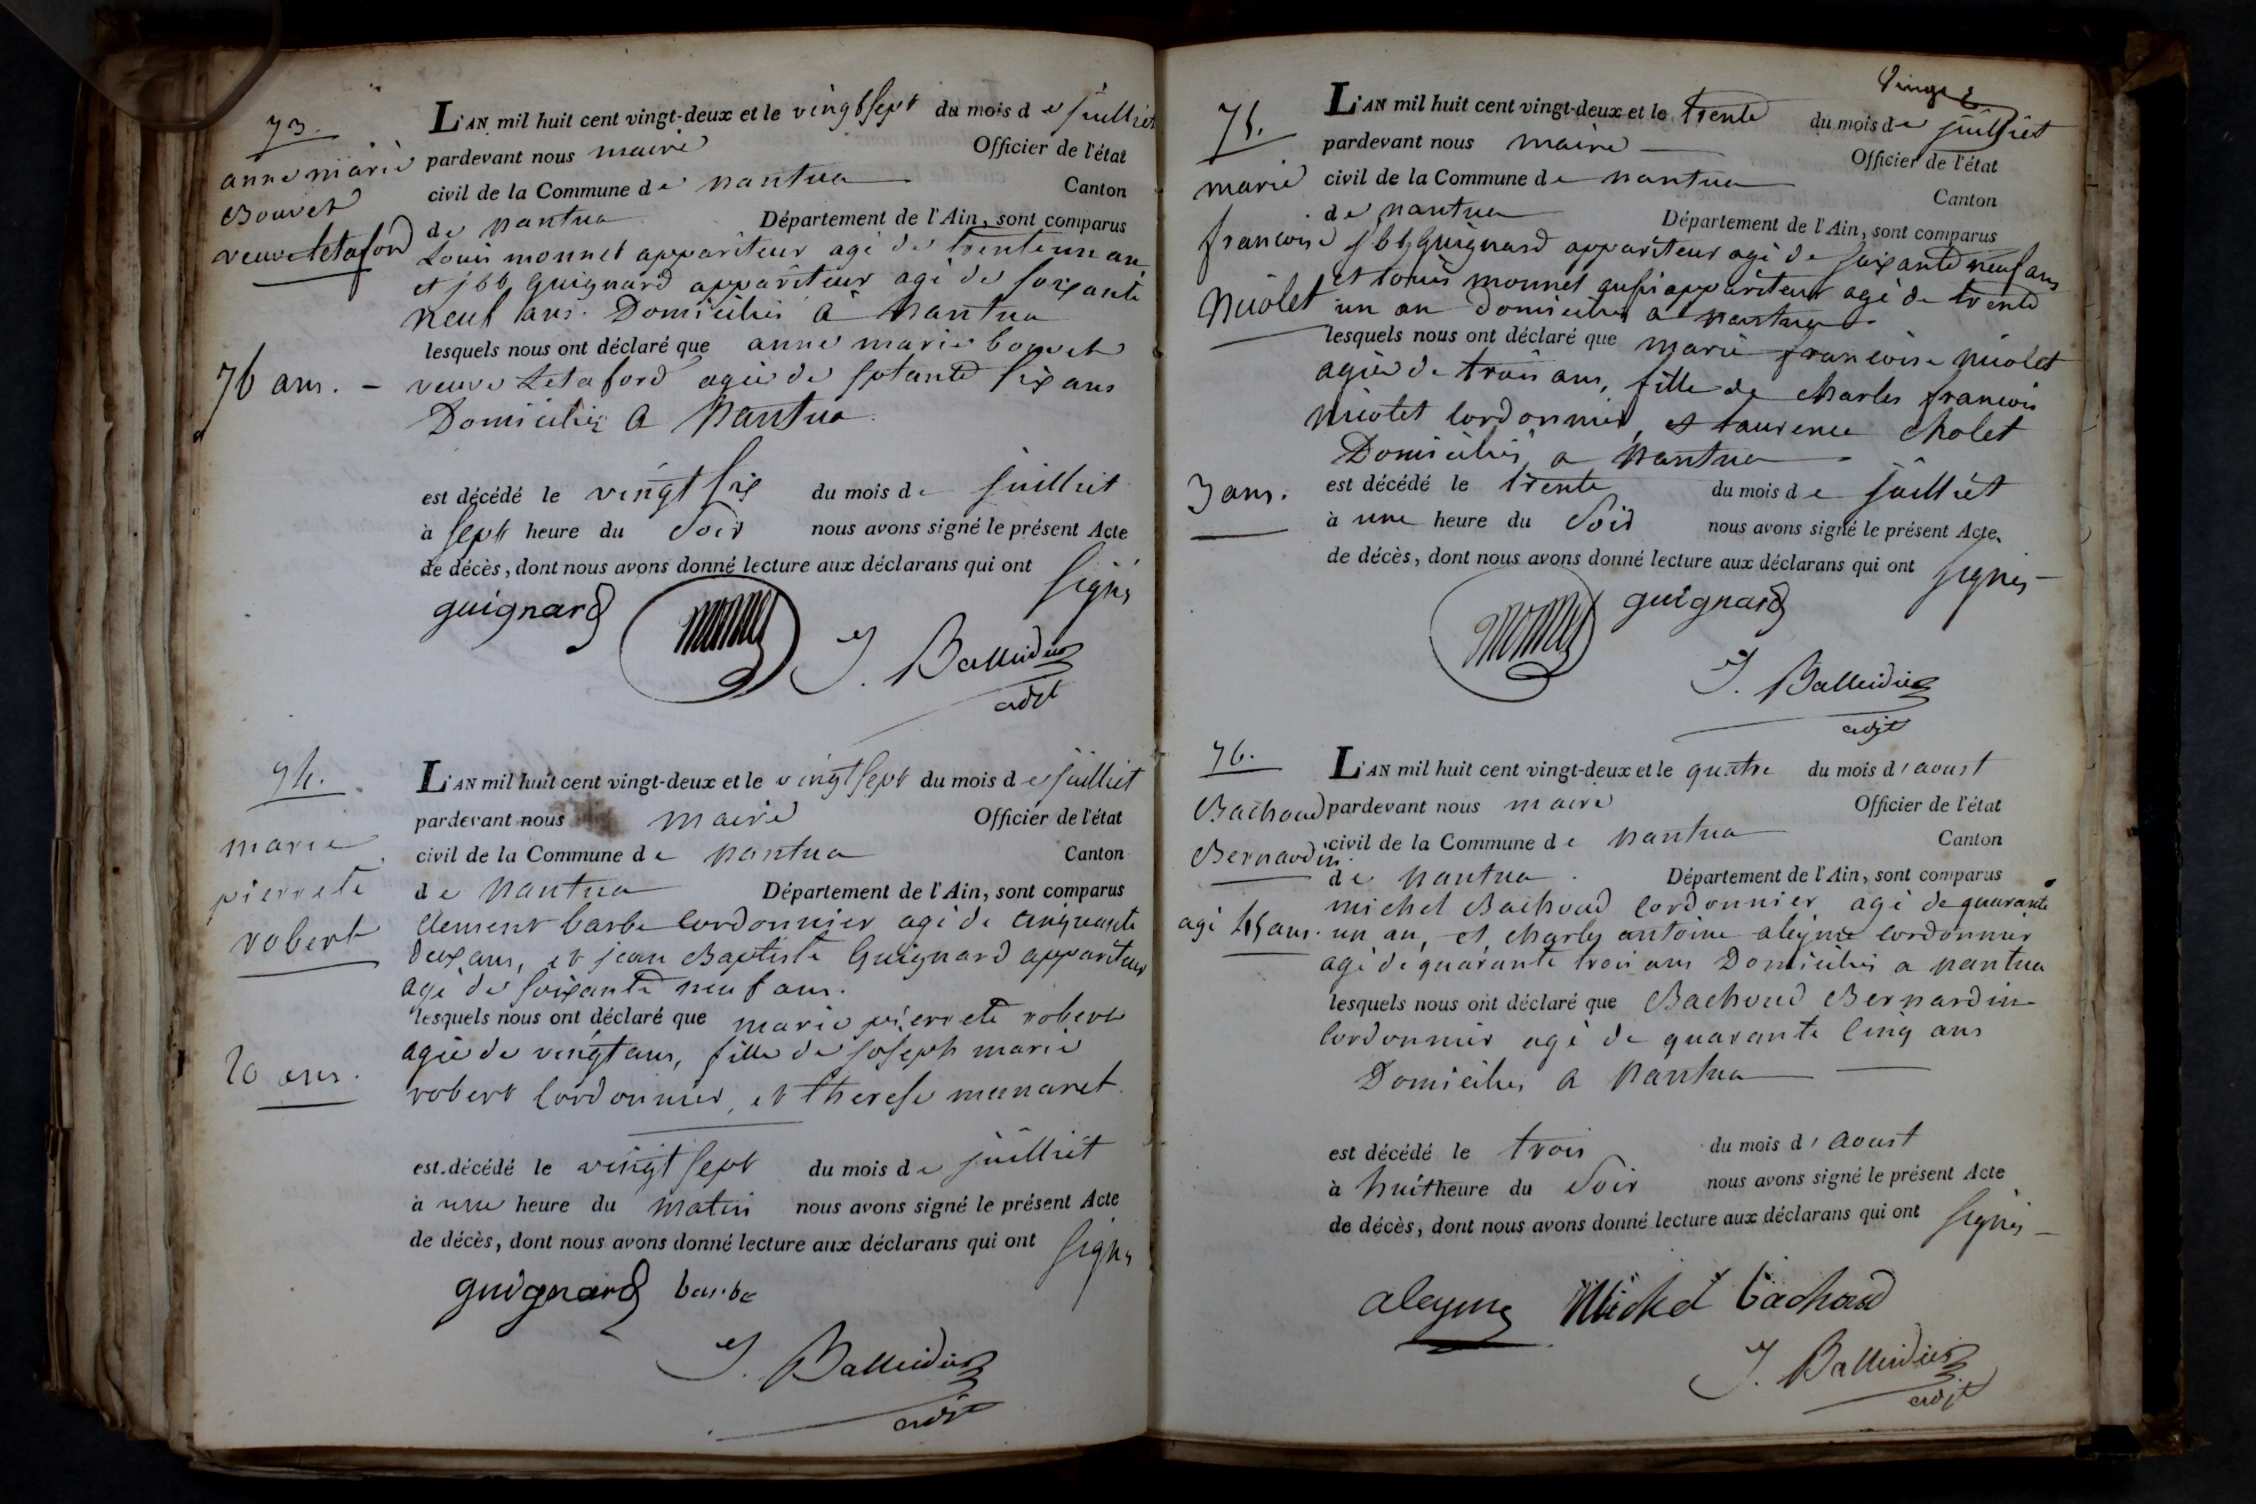 73.
anne marie
Bouvet
veuve Letaford
76 ans. –
L'AN mil huit cent vingt-deux et le vingt sept du mois de juilliet
pardevant nous maire Officier de l'état
civil de la Commune de nantua Canton
de nantua Département de l'Ain, sont comparus
Louis monnet appariteur agé de trente un an
et jbt Guignard appariteur agé de soixante
neuf ans. Domiciliés à nantua
lesquels nous ont déclaré que anne marie bouvet
veuve Letaford agée de sptante six ans
Domiciliée a Nantua
est décédé le vingt six du mois de juilliet
à sept heure du soir nous avons signé le présent Acte
de décès, dont nous avons donné lecture aux déclarans qui ont signés
guignard monnet J. Balleidier
adjt
74.
marie
pierrete
robert
20 ans.
L'AN mil huit cent vingt-deux et le vingt sept du mois de juilliet
pardevant nous maire Officier de l'état
civil de la Commune de nantua Canton
de nantua Département de l'Ain, sont comparus
clement barbe cordonnier agé de cinquante
deux ans, et jean Baptiste Guignard appariteur
agé de soixante neuf ans.
lesquels nous ont déclaré que marie pierrete robert
agée de vingt ans, fille de joseph marie
robert cordonnier, et therese munaret
est décédé le vingt sept du mois de juilliet
à une heure du matin nous avons signé le présent Acte
de décès, dont nous avons donné lecture aux déclarans qui ont signés
guignard barbe
J. Balleidier
adjt
75.
marie
francoise
Nicolet
3 ans.
L'AN mil huit cent vingt-deux et le trente du mois de juilliet
pardevant nous maire Officier de l'état
civil de la Commune de nantua Canton
de nantua Département de l'Ain, sont comparus
jbt Guignard appariteur agé de soixante neuf ans
et Louis monnet aussi appariteur agé de trente
un an domiciliés a nantua
lesquels nous ont déclaré que marie francoise nicolet
agée de trois ans, fille de charles francois
nicolet cordonnier, et Laurence cholet
Domiciliés a nantua
est décédé le trente du mois de juilliet
à une heure du soir nous avons signé le présent Acte
de décès, dont nous avons donné lecture aux déclarans qui ont signés
monnet guignard
J. Balleidier
adjt
76.
Bachoud
Bernardin
agé 45 ans.
L'AN mil huit cent vingt-deux et le quatre du mois d'aoust
pardevant nous maire Officier de l'état
civil de la Commune de nantua Canton
de nantua Département de l'Ain, sont comparus
michel Bachoud cordonnier agé de quarante
un an, et charles antoine aleyme cordonnier
agé de quarante trois ans Domiciliés a nantua
lesquels nous ont déclaré que Bachoud Bernardin
cordonnier agé de quarante cinq ans
Domicilié a nantua
est décédé le trois du mois d'aoust
à huit heure du soir nous avons signé le présent Acte
de décès, dont nous avons donné lecture aux déclarans qui ont signés
aleyme Michel bachoud
J. Balleidier
adjt